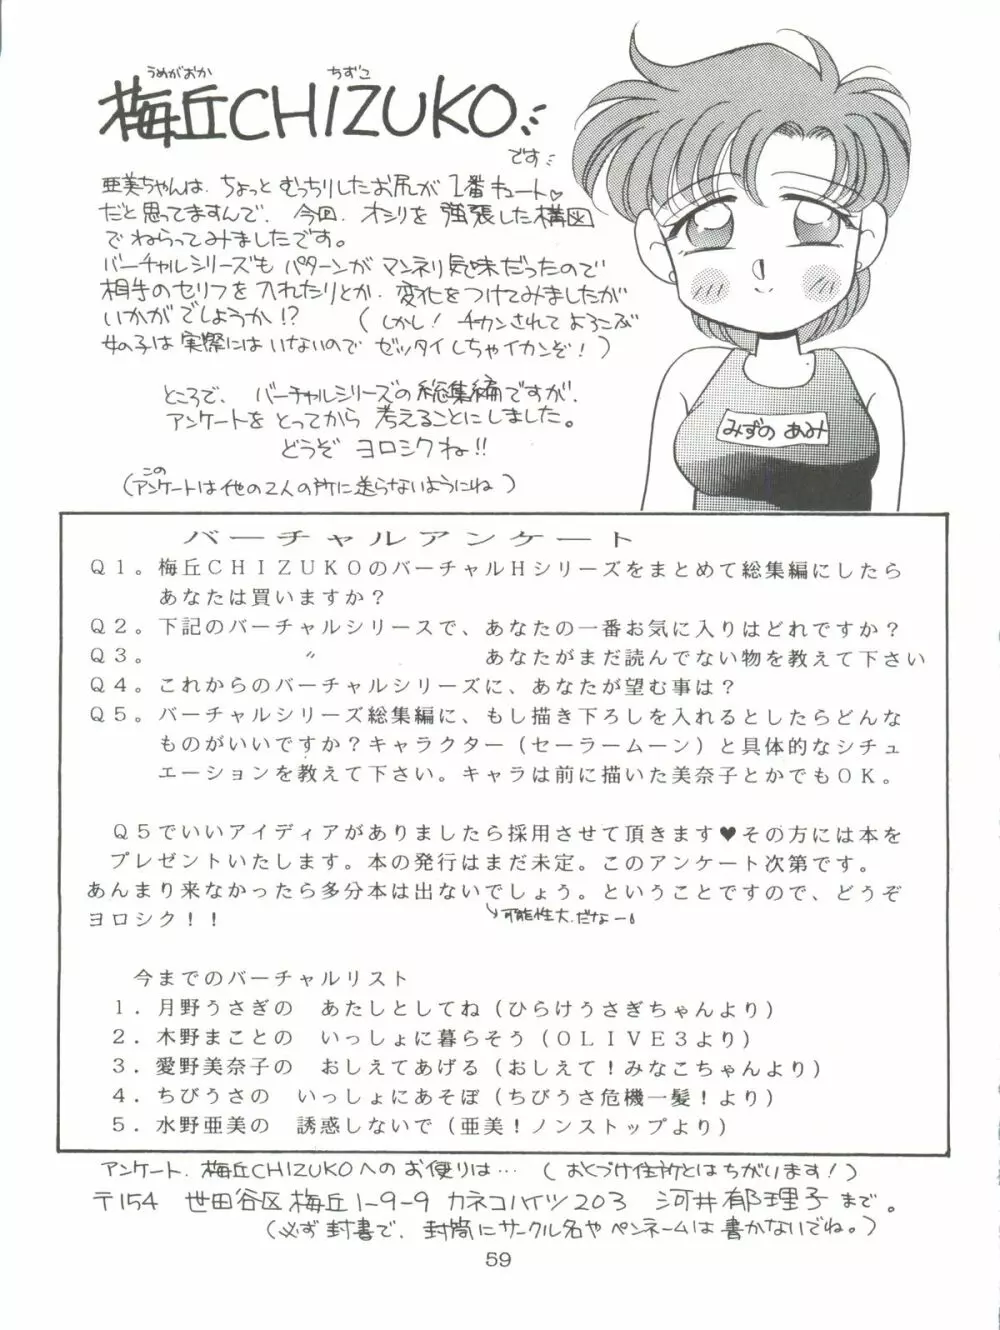 うめがおか ちずこ
梅丘CHIZUKO
です
亜美ちゃんは、ちょっとむっちりしたお尻が1番キュート♡
だと思ってますんで、今回、オシリを強張した構図
でねらってみましたです。
バーチャルシリーズもパターンがマンネリ気味だったので
相手のセリフを入れたりとか、変化をつけてみましたが
いかがでしょうか!? (しかし!チカンされてよろこぶ
女の子は実際にはいないのでゼッタイしちゃイカンぞ!)
ところで、バーチャルシリーズの総集編ですが、
アンケートをとってから考えることにしました。
どうぞヨロシクね!!
この
(アンケートは他の2人の所に送らないようにね)
みずの あみ
バーチャルアンケート
Q1。梅丘CHIZUKOのバーチャルHシリーズをまとめて総集編にしたら
あなたは買いますか?
Q2。下記のバーチャルシリースで、あなたの一番お気に入りはどれですか?
Q3。 〃 あなたがまだ読んでない物を教えて下さい
Q4。これからのバーチャルシリーズに、あなたが望む事は?
Q5。バーチャルシリーズ総集編に、もし描き下ろしを入れるとしたらどんな
ものがいいですか?キャラクター(セーラームーン)と具体的なシチュ
エーションを教えて下さい。キャラは前に描いた美奈子とかでもOK。
Q5でいいアイディアがありましたら採用させて頂きます♥その方には本を
プレゼントいたします。本の発行はまだ未定。このアンケート次第です。
あんまり来なかったら多分本は出ないでしょう。ということですので、どうぞ
ヨロシク!!
↘可能性大.だなー!
今までのバーチャルリスト
1.月野うさぎの あたしとしてね(ひらけうさぎちゃんより)
2.木野まことの いっしょに暮らそう(OLIVE3より)
3.愛野美奈子の おしえてあげる(おしえて!みなこちゃんより)
4.ちびうさの いっしょにあそぼ(ちびうさ危機一髪!より)
5.水野亜美の 誘惑しないで(亜美!ノンストップより)
アンケート、梅丘CHIZUKOへのお便りは…(おくづけ住所とはちがいます!)
〒154 世田谷区梅丘1-9-9 カネコハイツ203 河井郁理子まで。
(必ず封書で、封筒にサークル名やペンネームは書かないでね。)
59